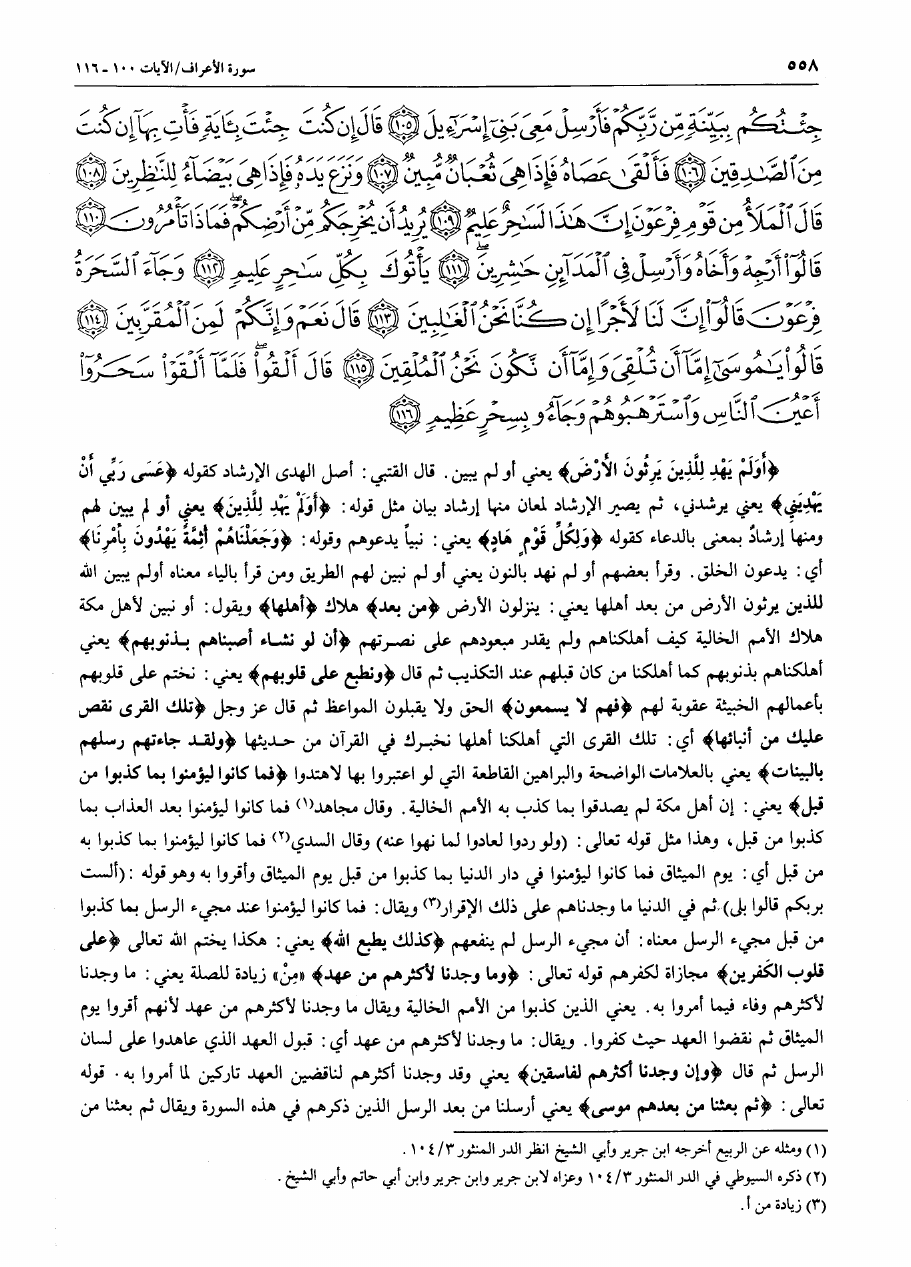 ٥٥٨ سورة الأعراف/الآيات ١٠٠ - ١١٦
جِئْتُكُم بِبَيِّنَةٍ مِّن رَّبِّكُمْ فَأَرْسِلْ مَعِىَ بَنِىٓ إِسْرَٰٓءِيلَ ﴿١٠٥﴾ قَالَ إِن كُنتَ جِئْتَ بِـَٔايَةٍ فَأْتِ بِهَآ إِن كُنتَ
مِنَ ٱلصَّٰدِقِينَ ﴿١٠٦﴾ فَأَلْقَىٰ عَصَاهُ فَإِذَا هِىَ ثُعْبَانٌ مُّبِينٌ ﴿١٠٧﴾ وَنَزَعَ يَدَهُۥ فَإِذَا هِىَ بَيْضَآءُ لِلنَّٰظِرِينَ ﴿١٠٨﴾
قَالَ ٱلْمَلَأُ مِن قَوْمِ فِرْعَوْنَ إِنَّ هَٰذَا لَسَٰحِرٌ عَلِيمٌ ﴿١٠٩﴾ يُرِيدُ أَن يُخْرِجَكُم مِّنْ أَرْضِكُمْ ۖ فَمَاذَا تَأْمُرُونَ ﴿١١٠﴾
قَالُوٓا۟ أَرْجِهْ وَأَخَاهُ وَأَرْسِلْ فِى ٱلْمَدَآئِنِ حَٰشِرِينَ ﴿١١١﴾ يَأْتُوكَ بِكُلِّ سَٰحِرٍ عَلِيمٍ ﴿١١٢﴾ وَجَآءَ ٱلسَّحَرَةُ
فِرْعَوْنَ قَالُوٓا۟ إِنَّ لَنَا لَأَجْرًا إِن كُنَّا نَحْنُ ٱلْغَٰلِبِينَ ﴿١١٣﴾ قَالَ نَعَمْ وَإِنَّكُمْ لَمِنَ ٱلْمُقَرَّبِينَ ﴿١١٤﴾
قَالُوا۟ يَٰمُوسَىٰٓ إِمَّآ أَن تُلْقِىَ وَإِمَّآ أَن نَّكُونَ نَحْنُ ٱلْمُلْقِينَ ﴿١١٥﴾ قَالَ أَلْقُوا۟ ۖ فَلَمَّآ أَلْقَوْا۟ سَحَرُوٓا۟
أَعْيُنَ ٱلنَّاسِ وَٱسْتَرْهَبُوهُمْ وَجَآءُو بِسِحْرٍ عَظِيمٍ ﴿١١٦﴾
﴿أَوَلَمْ يَهْدِ لِلَّذِينَ يَرِثُونَ الأَرْضَ﴾ يعني أو لم يبين. قال القتبي: أصل الهدى الإرشاد كقوله ﴿عَسَى رَبِّي أَنْ
يَهْدِيَنِي﴾ يعني يرشدني، ثم يصير الإرشاد لمعان منها إرشاد بيان مثل قوله: ﴿أَوَلَمْ يَهْدِ لِلَّذِينَ﴾ يعني أو لم يبين لهم
ومنها إرشادٌ بمعنى بالدعاء كقوله ﴿وَلِكُلِّ قَوْمٍ هَادٍ﴾ يعني: نبياً يدعوهم وقوله: ﴿وَجَعَلْنَاهُمْ أَئِمَّةً يَهْدُونَ بِأَمْرِنَا﴾
أي: يدعون الخلق. وقرأ بعضهم أو لم نهد بالنون يعني أو لم نبين لهم الطريق ومن قرأ بالياء معناه أولم يبين الله
للذين يرثون الأرض من بعد أهلها يعني: ينزلون الأرض ﴿من بعد﴾ هلاك ﴿أهلها﴾ ويقول: أو نبين لأهل مكة
هلاك الأمم الخالية كيف أهلكناهم ولم يقدر معبودهم على نصرتهم ﴿أن لو نشاء أصبناهم بذنوبهم﴾ يعني
أهلكناهم بذنوبهم كما أهلكنا من كان قبلهم عند التكذيب ثم قال ﴿ونطبع على قلوبهم﴾ يعني: نختم على قلوبهم
بأعمالهم الخبيثة عقوبة لهم ﴿فهم لا يسمعون﴾ الحق ولا يقبلون المواعظ ثم قال عز وجل ﴿تلك القرى نقص
عليك من أنبائها﴾ أي: تلك القرى التي أهلكنا أهلها نخبرك في القرآن من حديثها ﴿ولقد جاءتهم رسلهم
بالبينات﴾ يعني بالعلامات الواضحة والبراهين القاطعة التي لو اعتبروا بها لاهتدوا ﴿فما كانوا ليؤمنوا بما كذبوا من
قبل﴾ يعني: إن أهل مكة لم يصدقوا بما كذب به الأمم الخالية. وقال مجاهد(١) فما كانوا ليؤمنوا بعد العذاب بما
كذبوا من قبل، وهذا مثل قوله تعالى: (ولو ردوا لعادوا لما نهوا عنه) وقال السدي(٢) فما كانوا ليؤمنوا بما كذبوا به
من قبل أي: يوم الميثاق فما كانوا ليؤمنوا في دار الدنيا بما كذبوا من قبل يوم الميثاق وأقروا به وهو قوله: (ألست
بربكم قالوا بلى) ثم في الدنيا ما وجدناهم على ذلك الإقرار(٣) ويقال: فما كانوا ليؤمنوا عند مجيء الرسل بما كذبوا
من قبل مجيء الرسل معناه: أن مجيء الرسل لم ينفعهم ﴿كذلك يطبع الله﴾ يعني: هكذا يختم الله تعالى ﴿على
قلوب الكَفرين﴾ مجازاة لكفرهم قوله تعالى: ﴿وما وجدنا لأكثرهم من عهد﴾ «مِنْ» زيادة للصلة يعني: ما وجدنا
لأكثرهم وفاء فيما أمروا به. يعني الذين كذبوا من الأمم الخالية ويقال ما وجدنا لأكثرهم من عهد لأنهم أقروا يوم
الميثاق ثم نقضوا العهد حيث كفروا. ويقال: ما وجدنا لأكثرهم من عهد أي: قبول العهد الذي عاهدوا على لسان
الرسل ثم قال ﴿وإن وجدنا أكثرهم لفاسقين﴾ يعني وقد وجدنا أكثرهم لناقضين العهد تاركين لما أمروا به. قوله
تعالى: ﴿ثم بعثنا من بعدهم موسى﴾ يعني أرسلنا من بعد الرسل الذين ذكرهم في هذه السورة ويقال ثم بعثنا من
(١) ومثله عن الربيع أخرجه ابن جرير وأبي الشيخ انظر الدر المنثور ١٠٤/٣.
(٢) ذكره السيوطي في الدر المنثور ١٠٤/٣ وعزاه لابن جرير وابن جرير وابن أبي حاتم وأبي الشيخ.
(٣) زيادة من أ.